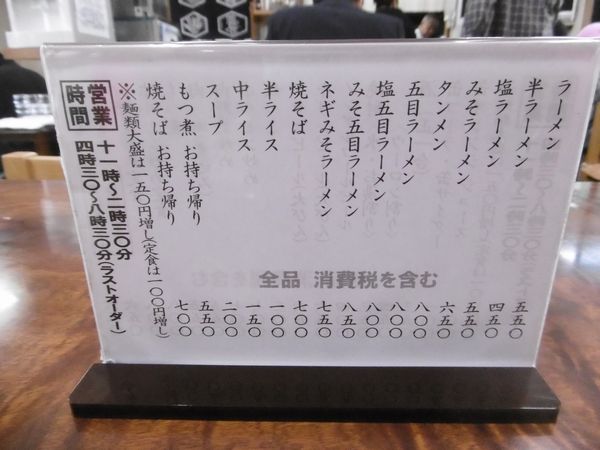 ラーメン 五五〇
半ラーメン 四五〇
塩ラーメン 五五〇
みそラーメン 六五〇
タンメン 八〇〇
五目ラーメン 八〇〇
塩五目ラーメン 八〇〇
みそ五目ラーメン 八五〇
ネギみそラーメン 七五〇
焼そば 七〇〇
半ライス 一〇〇
中ライス 一五〇
スープ 二〇〇
もつ煮 お持ち帰り 五五〇
焼そば お持ち帰り 七〇〇
全品 消費税を含む
※麺類大盛は一五〇円増し(定食は一〇〇円増し)
営業時間 十一時〜二時三〇分
四時三〇〜八時三〇分(ラストオーダー)